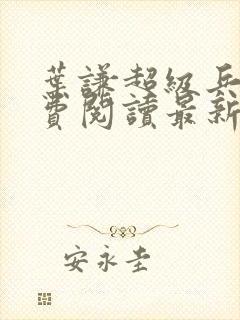 葉謙超級兵
費閱讀最新
安永圭